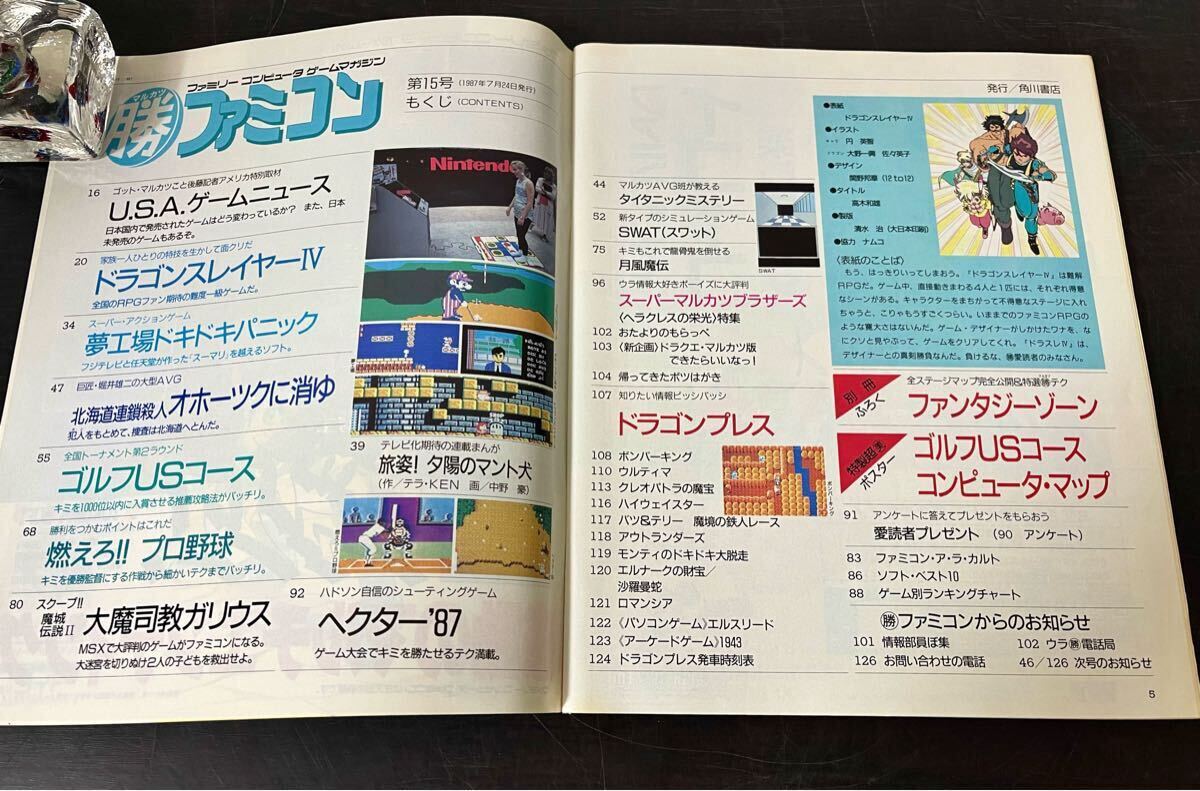 ファミリー コンピュータ ゲームマガジン
マルカツ
勝 ファミコン
第15号 (1987年7月24日発行)
もくじ (CONTENTS)
16 ゴット・マルカツこと後藤記者アメリカ特別取材
U.S.A.ゲームニュース
日本国内で発売されたゲームはどう変わっているか? また、日本
未発売のゲームもあるぞ。
20 家族一人ひとりの特技を生かして面クリだ
ドラゴンスレイヤーⅣ
全国のRPGファン期待の難度一級ゲームだ。
34 スーパー・アクションゲーム
夢工場ドキドキパニック
フジテレビと任天堂が作った“スーマリ”を越えるソフト。
47 巨匠・堀井雄二の大型AVG
北海道連鎖殺人オホーツクに消ゆ
犯人をもとめて、捜査は北海道へとんだ。
55 全国トーナメント第2ラウンド
ゴルフUSコース
キミを1000位以内に入賞させる推薦攻略法がバッチリ。
68 勝利をつかむポイントはこれだ
燃えろ!! プロ野球
キミを優勝監督にする作戦から細かいテクまでバッチリ。
80 スクープ!!
魔城伝説Ⅱ 大魔司教ガリウス
MSXで大評判のゲームがファミコンになる。
大迷宮を切りぬけ2人の子どもを救出せよ。
Nintendo
39 テレビ化期待の連載まんが
旅姿! 夕陽のマント犬
(作/テラ・KEN 画/中野 豪)
燃えろプロ野球
92 ハドソン自信のシューティングゲーム
ヘクター'87
ゲーム大会でキミを勝たせるテク満載。
44 マルカツAVG班が教える
タイタニックミステリー
52 新タイプのシミュレーションゲーム
SWAT(スワット)
SWAT
75 キミもこれで龍骨鬼を倒せる
月風魔伝
96 ウラ情報大好きボーイズに大評判
スーパーマルカツブラザーズ
〈ヘラクレスの栄光〉特集
102 おたよりのもらっぺ
103 〈新企画〉ドラクエ・マルカツ版
できたらいいなっ!
104 帰ってきたボツはがき
107 知りたい情報ビッシバッシ
ドラゴンプレス
108 ボンバーキング
110 ウルティマ
113 クレオパトラの魔宝
116 ハイウェイスター
117 バツ&テリー 魔境の鉄人レース
118 アウトランダーズ
119 モンティのドキドキ大脱走
120 エルナークの財宝/
沙羅曼蛇
121 ロマンシア
122 《パソコンゲーム》エルスリード
123 《アーケードゲーム》1943
124 ドラゴンプレス発車時刻表
ボンバーキング
発行/角川書店
●表紙
ドラゴンスレイヤーⅣ
●イラスト
キャラ 円 英智
ドラゴン 大野一興 佐々英子
●デザイン
間野邦章(12 to 12)
●タイトル
高木和雄
●製版
清水 治(大日本印刷)
●協力 ナムコ
〈表紙のことば〉
もう、はっきりいってしまおう。『ドラゴンスレイヤーⅣ』は難解
RPGだ。ゲーム中、直接動きまわる4人と1匹には、それぞれ得意
なシーンがある。キャラクターをまちがって不得意なステージに入れ
ちゃうと、こりゃもうすごくつらい。いままでのファミコンRPGの
ような寛大さはないんだ。ゲーム・デザイナーがしかけたワナを、な
にクソと見やぶって、ゲームをクリアしてくれ。『ドラスレⅣ』は、
デザイナーとの真剣勝負なんだ。負けるな、勝愛読者のみなさん。
別冊ふろく
全ステージマップ完全公開&特選勝テク
ファンタジーゾーン
特製超美ポスター
ゴルフUSコース
コンピュータ・マップ
91 アンケートに答えてプレゼントをもらおう
愛読者プレゼント (90 アンケート)
83 ファミコン・ア・ラ・カルト
86 ソフト・ベスト10
88 ゲーム別ランキングチャート
勝ファミコンからのお知らせ
101 情報部員ぼ集
102 ウラ勝電話局
126 お問い合わせの電話
46/126 次号のお知らせ
5